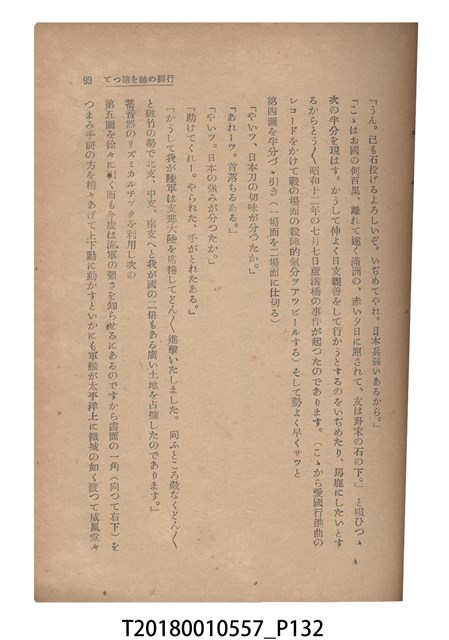 行脚の跡を追つて 99
「うん。己も石投げるよろしいぞ、いぢめてやれ。日本兵弱いあるから。」
「こゝはお國の何百里、離れて遠く滿洲の、赤い夕日に照されて、友は野末の石の下。」と唄ひつゝ
次の半分を現はす。かうして仲よく日支親善をして行かうとするのをいぢめたり、馬鹿にしたいとす
るからとう〳〵昭和十二年の七月七日蘆溝橋の事件が起つたのであります。(こゝから愛國行進曲の
レコードをかけて戰の場面の殺陣的氣分ヲアツピールする)そして勢よく早くサツと
第四圖を半分づゝ引き(一場面を二場面に仕切る)
「やいツ、日本刀の切味が分つたか。」
「あれーツ。首落ちるある。」
「やいツ。日本の强みが分つたか。」
「助けてくれー。やられた、手がとれたある。」
「かうして我が陸軍は支那大陸を席捲してどん〳〵進擊いたしました。向ふところ敵なくどん〳〵
と破竹の勢で北支、中支、南支へと我が國の二倍もある廣い土地を占據したのであります。」
蓄音器のリズミカルチツクを利用し次の
第五圖を徐々に引く而も今度は海軍の强さを知らせるにあるのですから畫面の一角(向つて右下)を
つまみ手前の方を稍々あげて上下動に動かすといかにも軍艦が太平洋上に鐵城の如く浮つて威風堂々
T20180010557_P132